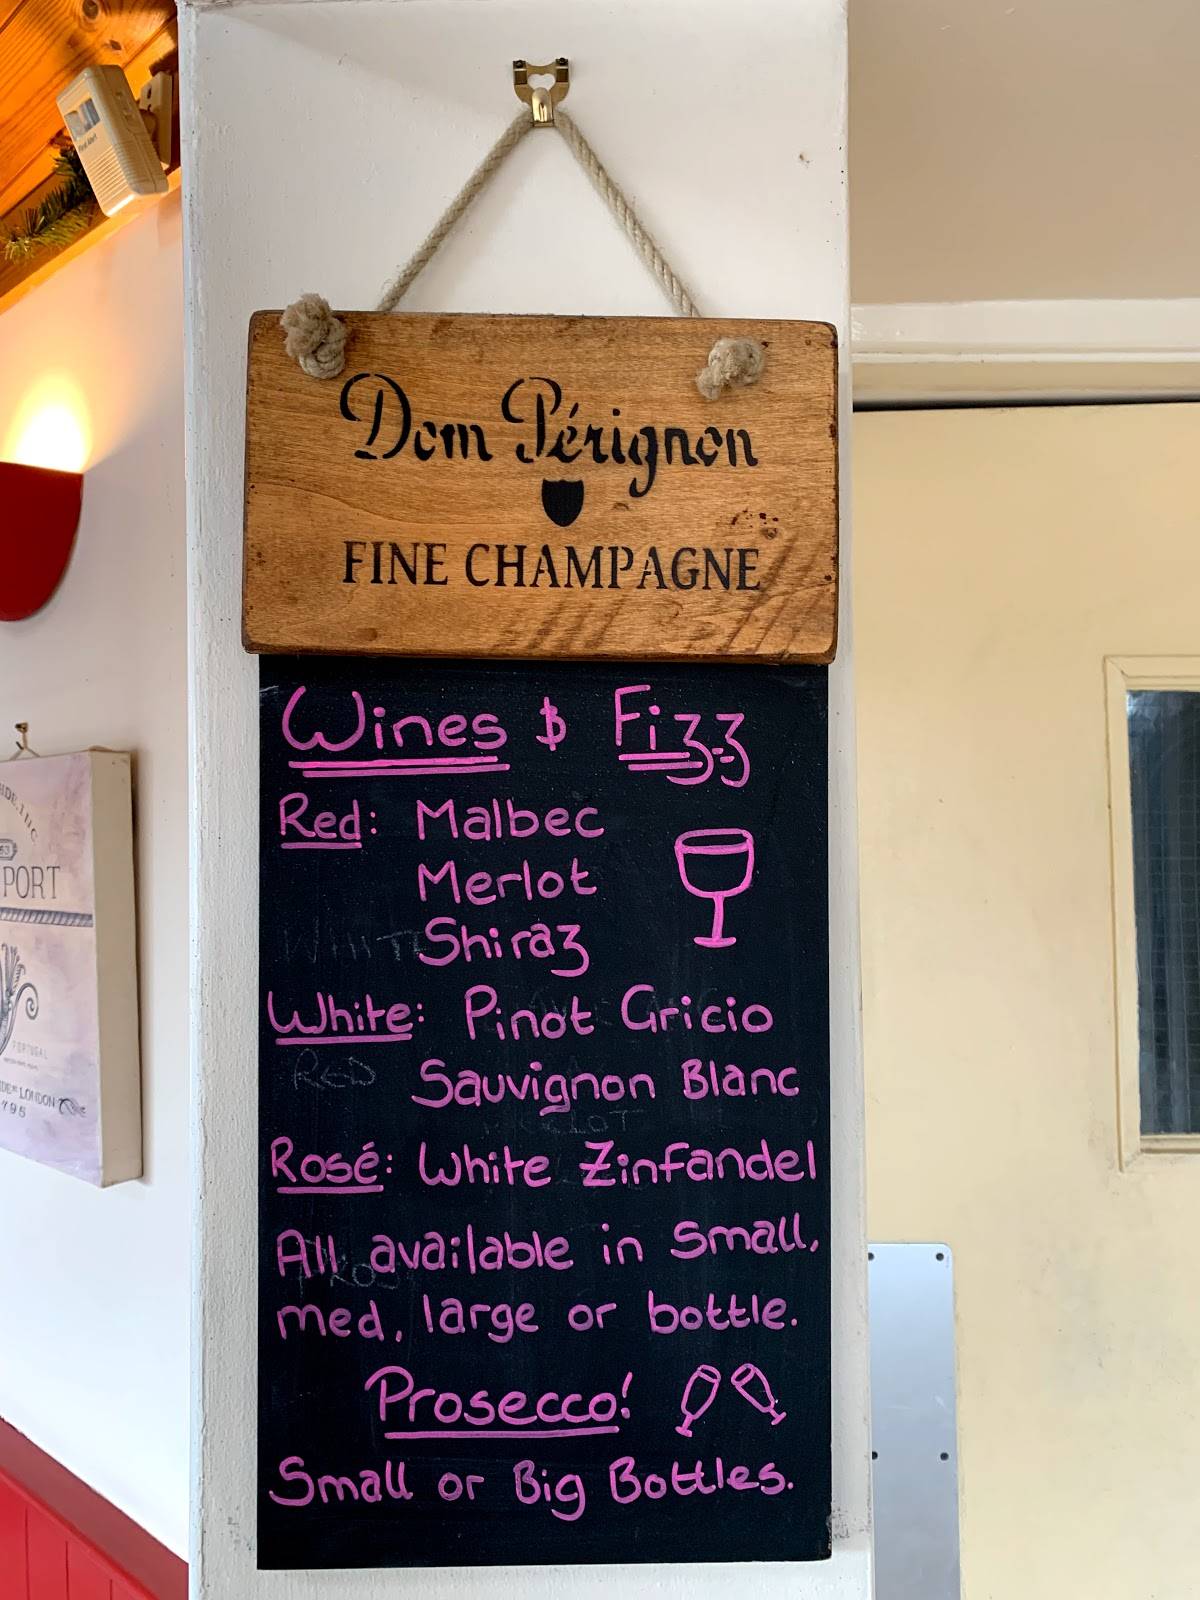 First Alert
Dom Pérignon
FINE CHAMPAGNE
Wines & Fizz
Red: Malbec
Merlot
Shiraz
White: Pinot Gricio
Sauvignon Blanc
Rosé: White Zinfandel
All available in Small,
med, large or bottle.
Prosecco!
Small or Big Bottles.
WHITE
RED
PORT
PORTUGAL
LONDON